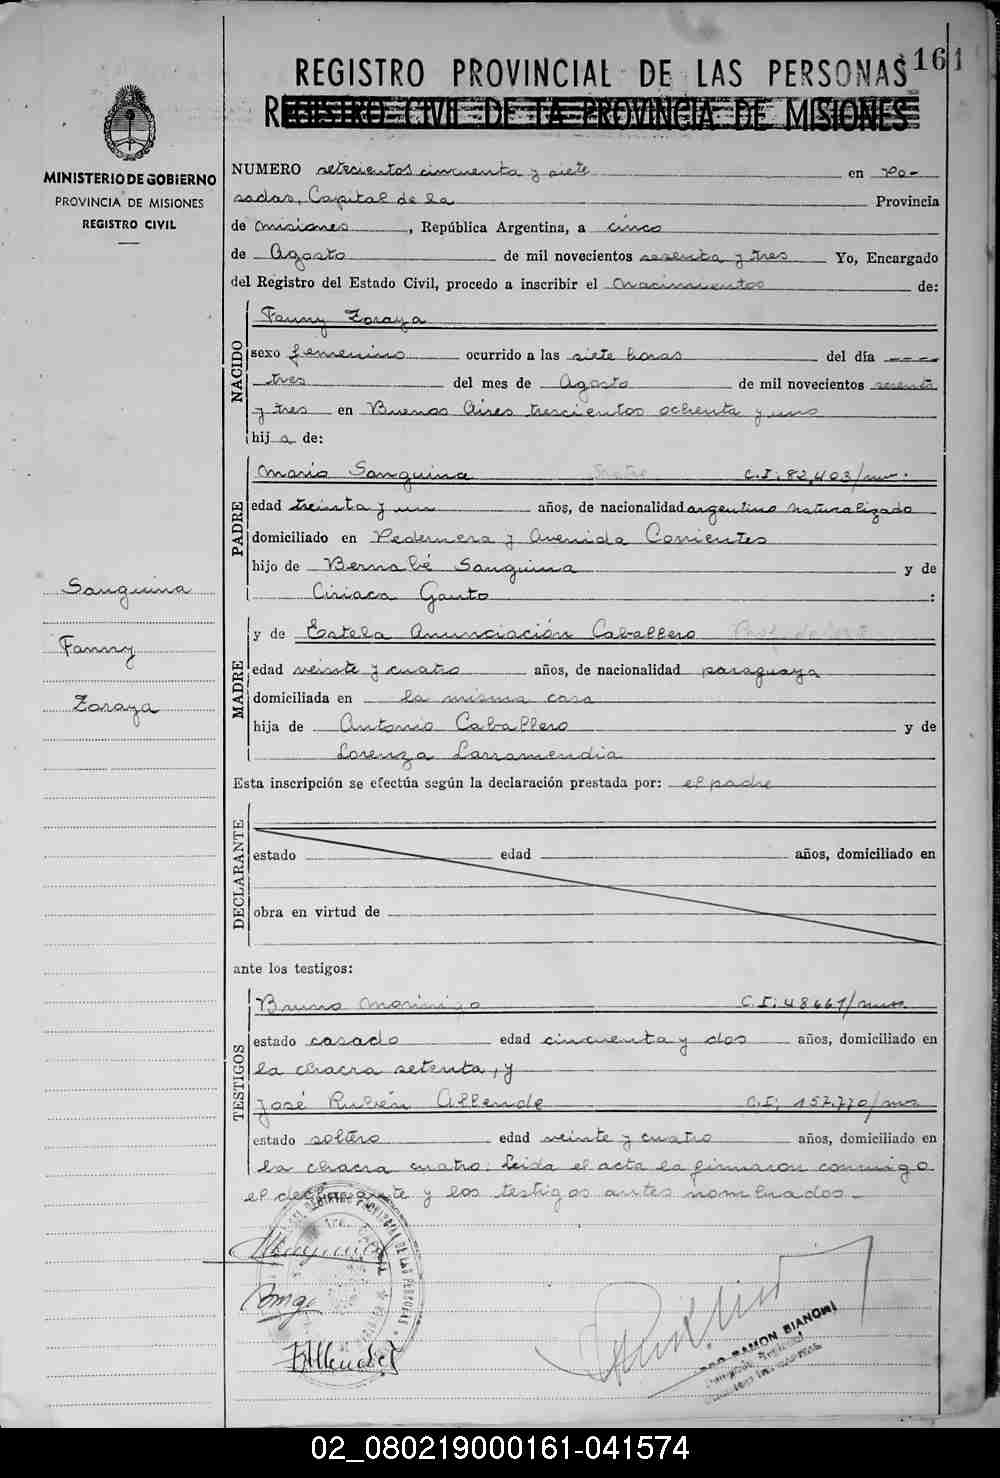 161
REGISTRO PROVINCIAL DE LAS PERSONAS
REGISTRO CIVIL DE LA PROVINCIA DE MISIONES
MINISTERIO DE GOBIERNO
PROVINCIA DE MISIONES
REGISTRO CIVIL
NUMERO setecientos cincuenta y siete en Po-
sadas, Capital de la Provincia
de Misiones, República Argentina, a cinco
de Agosto de mil novecientos sesenta y tres Yo, Encargado
del Registro del Estado Civil, procedo a inscribir el Nacimiento de:
NACIDO
Fanny Zoraya
sexo femenino ocurrido a las siete horas del día ----
tres del mes de Agosto de mil novecientos sesenta
y tres en Buenos Aires trescientos ochenta y uno
hija de:
PADRE
Mario Sanguina C.I: 82,403/
edad treinta y un años, de nacionalidad argentino naturalizado
domiciliado en Pedernera y Avenida Corrientes
hijo de Bernabé Sanguina y de
Ciriaca Gauto :
MADRE
y de Estela Anunciación Caballero
edad veinte y cuatro años, de nacionalidad paraguaya
domiciliada en la misma casa
hija de Antonio Caballero y de
Lorenza Larramendia
Esta inscripción se efectúa según la declaración prestada por: el padre
DECLARANTE
estado edad años, domiciliado en
obra en virtud de
ante los testigos:
TESTIGOS
Bruno Marinigo C.I: 48661/
estado casado edad cincuenta y dos años, domiciliado en
la chacra setenta, y
José Rubén Allende C.I; 157.770/
estado soltero edad veinte y cuatro años, domiciliado en
la chacra cuatro. Leida el acta la firmaron conmigo
el declarante y los testigos antes nombrados.-
Sanguina
Fanny
Zoraya
RAMON BIANCHI
02_080219000161-041574